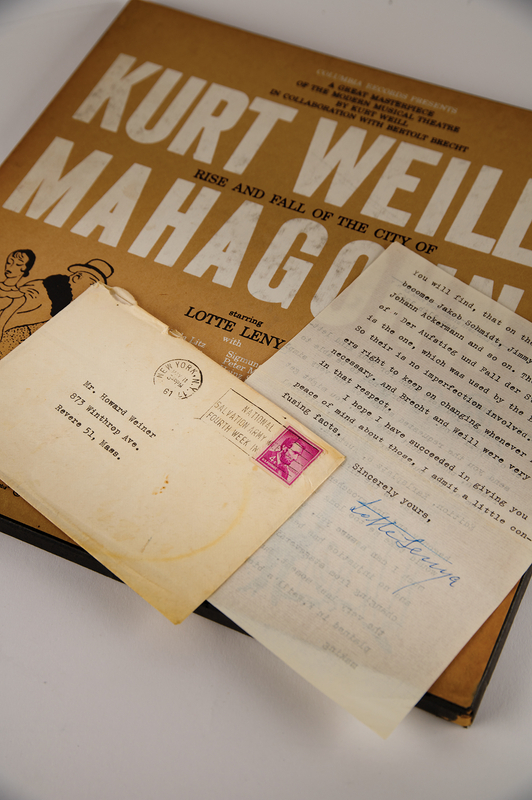 COLUMBIA RECORDS PRESENTS
A GREAT MASTERPIECE
OF THE MODERN MUSICAL THEATRE
BY KURT WEILL
IN COLLABORATION WITH BERTOLT BRECHT
KURT WEILL
RISE AND FALL OF THE CITY OF
MAHAGO
starring
LOTTE LENY
with
Litz
Peter
NEW YORK, N.Y.
PM
61
NATIONAL
SALVATION ARMY
FOURTH WEEK IN
Mr. Howard Weiner
873 Winthrop Ave.
Revere 51, Mass.
You will find, that on the
becomes Jakob Schmidt,
Johann Ackermann and so on.
of " Der Aufstieg und Fall der
is the one, which was used by the
So their is no imperfection involve
ers right to keep on changing whenever
necessary. And Brecht and Weill were very
in that respect.
I hope I have succeeded in giving you
peace of mind about those, I admit a little con-
fusing facts.
Sincerely yours,
Lotte Lenya